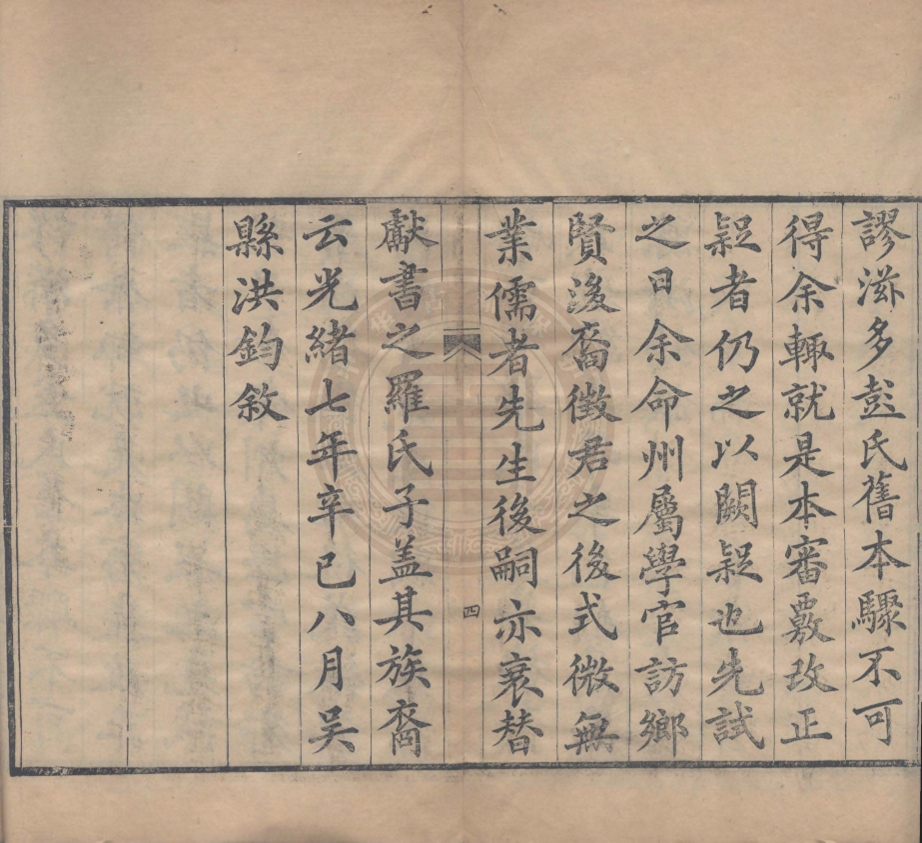 謬滋多彭氏舊本驟不可
得余輙就是本審覈改正
䟽者仍之以闕䟽也先試
之日余命州屬學官訪鄉
賢後裔徵君之後式微無
業儒者先生後嗣亦衰替
四
獻書之羅氏子盖其族裔
云光緒七年辛巳八月吴
縣洪鈞敘